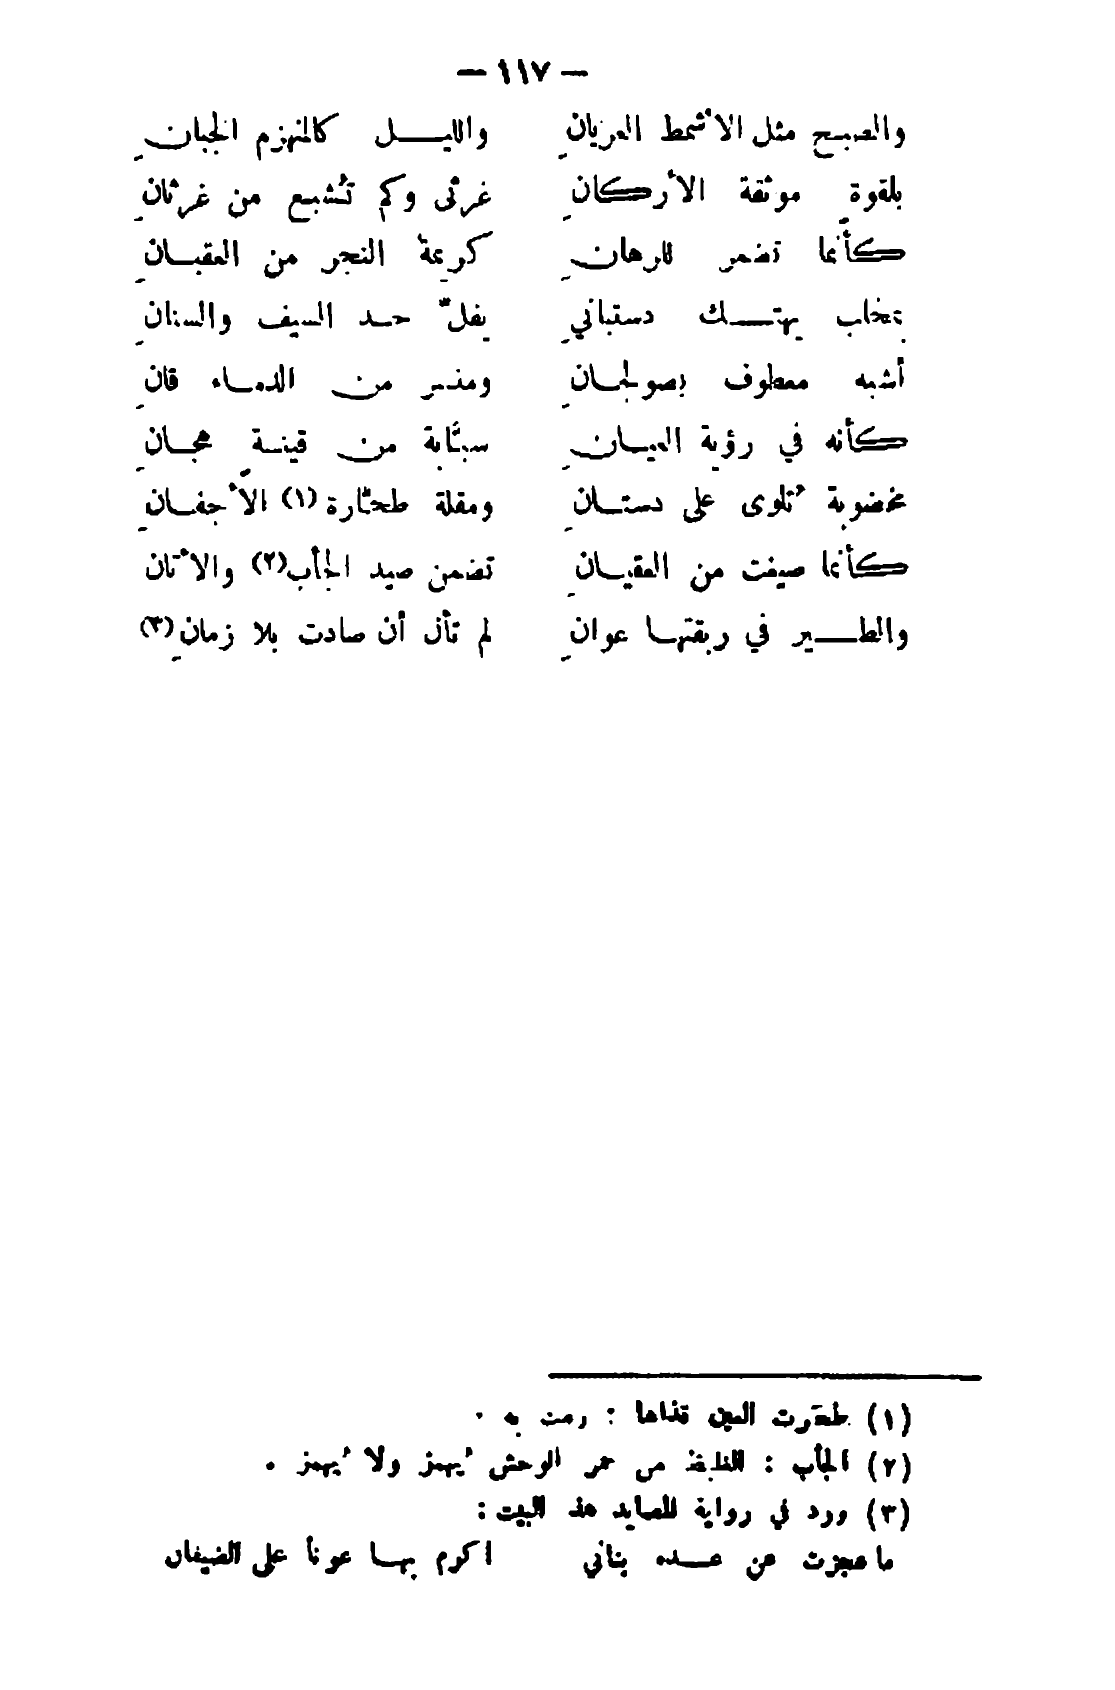 — ١١٧ —
والصبح مثل الأشمط العريان والليل كالمنهزم الجبانِ
بلقوةٍ موثقة الأركانِ غرثى وكم تُشبع من غرثانِ
كأنما تضمر للرهانِ كريمةُ النجرِ من العقبانِ
بمخلب يهتك دستبانيِ يفلّ حد السيف والسنانِ
أشبه معطوف بصولجانِ ومنسر من الدماء قانِ
كأنه في رؤية العيانِ سبّابة من قينة هجانِ
مخضوبة تُلوى على دستانِ ومقلة طحّارة (١) الأجفانِ
كأنما صيغت من العقيانِ تضمن صيد الجأب(٢) والأتان
والطير في ربقتها عوانِ لم تأل أن صادت بلا زمانِ(٣)
(١) طحرت العين قذاها : رمت به .
(٢) الجأب : الغليظ من حمر الوحش يُهمز ولا يُهمز .
(٣) ورد في رواية للمصايد هذا البيت :
ما عجزت عن عده بناني اكرم بها عوناً على الضيفان